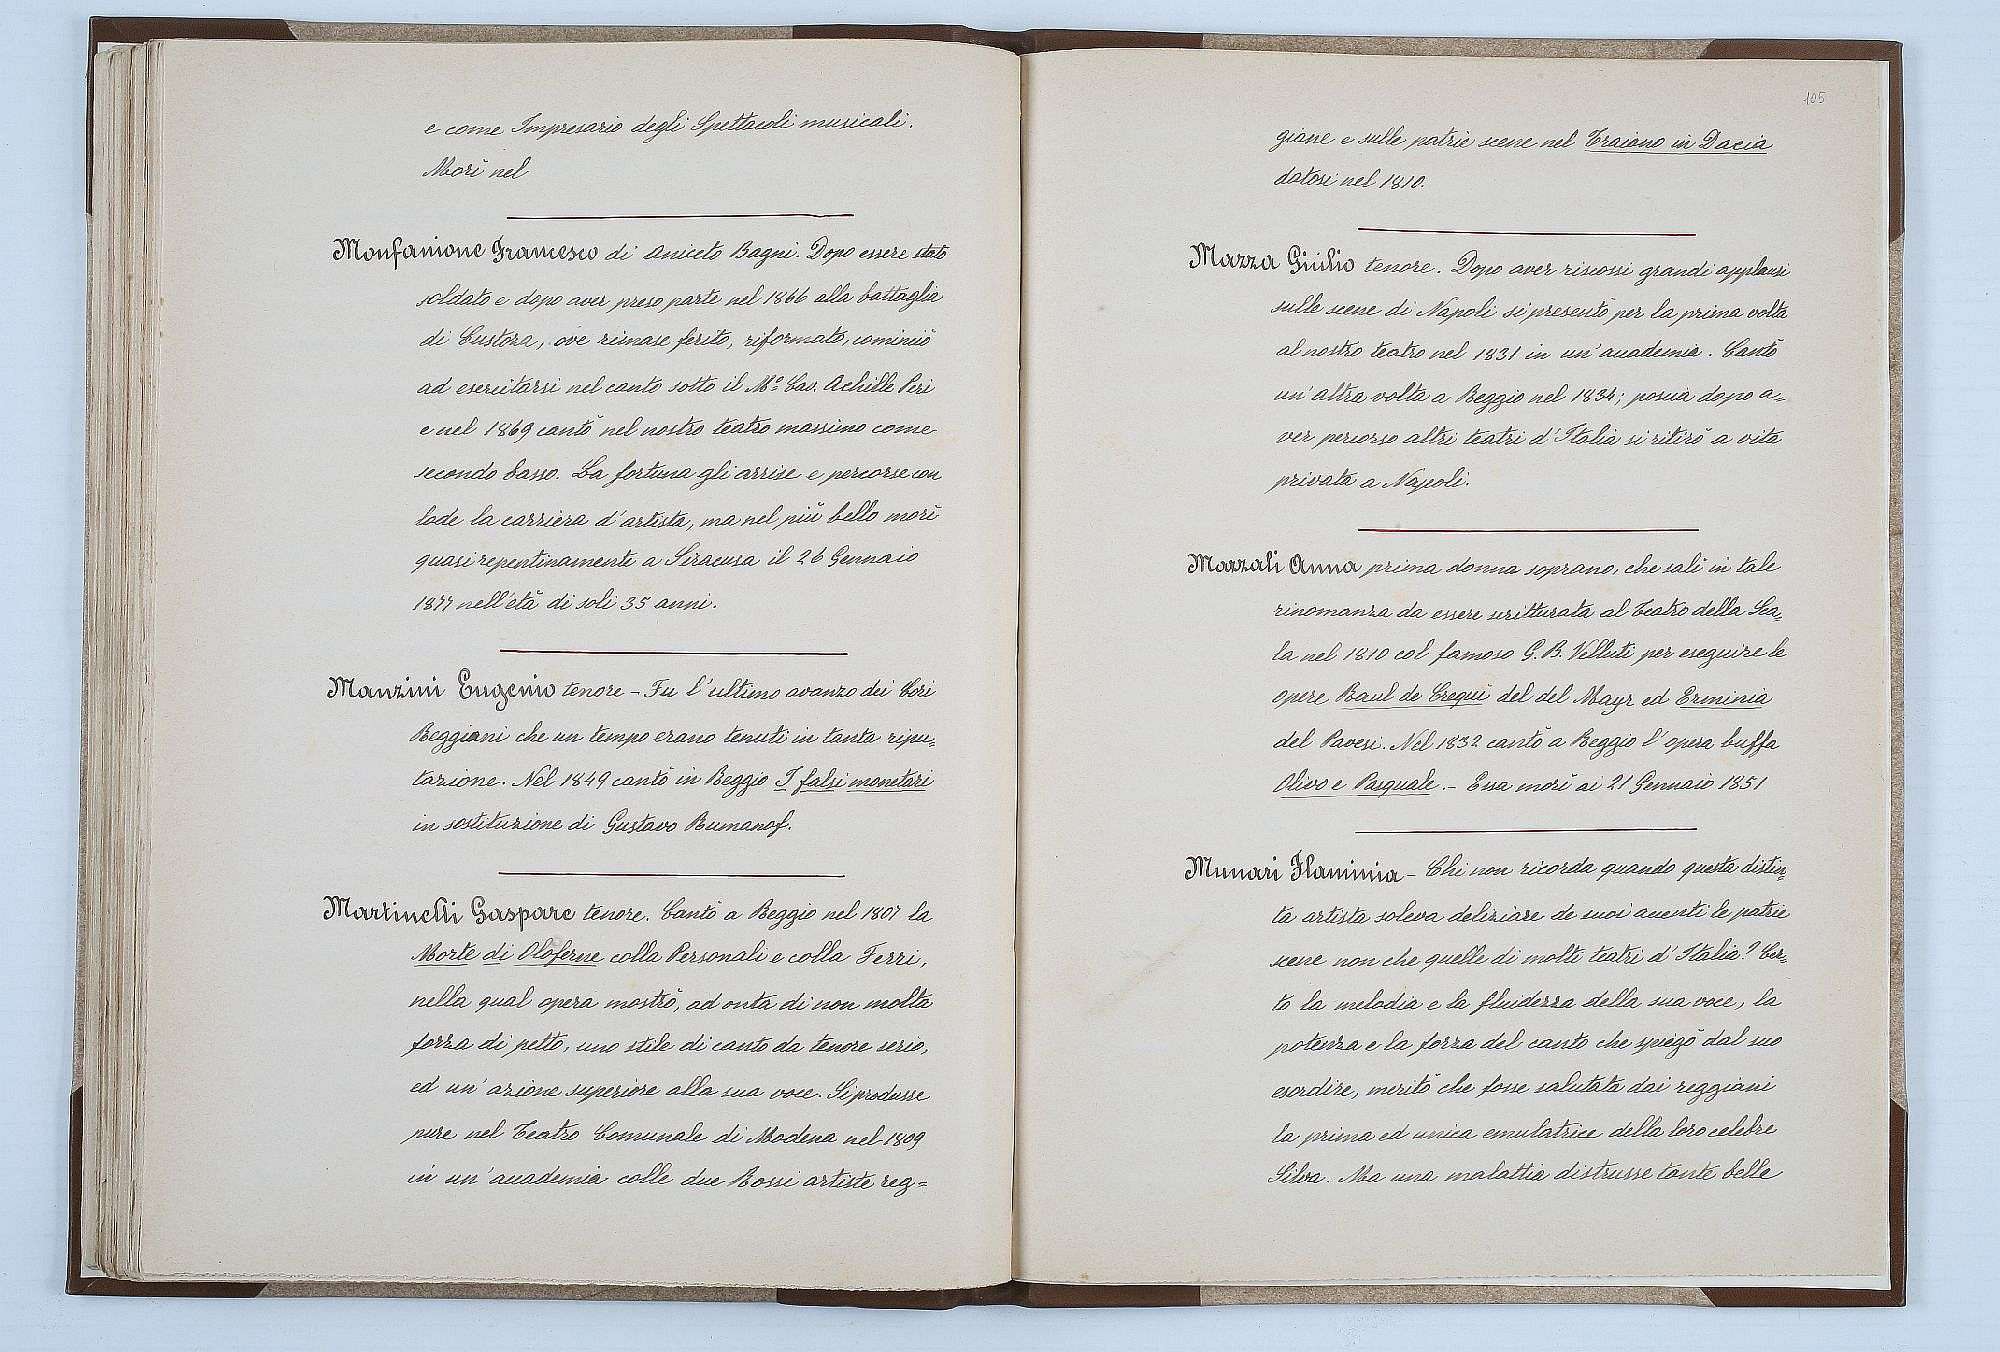 e come Impresario degli Spettacoli musicali.
Morì nel
Monfanione Francesco di Aniceto Bagni. Dopo essere stato
soldato e dopo aver preso parte nel 1866 alla battaglia
di Custoza, ove rimase ferito, riformato, cominciò
ad esercitarsi nel canto sotto il Mo. Cav. Achille Peri
e nel 1869 cantò nel nostro teatro massimo come
secondo basso. La fortuna gli arrise e percorse con
lode la carriera d'artista, ma nel più bello morì
quasi repentinamente a Siracusa il 26 Gennaio
1877 nell'età di soli 35 anni.
Manzini Eugenio tenore - Fu l'ultimo avanzo dei Cori
Reggiani che un tempo erano tenuti in tanta ripu=
tazione. Nel 1849 cantò in Reggio I falsi monetari
in sostituzione di Gustavo Rumanof.
Martinelli Gaspare tenore. Cantò a Reggio nel 1807 la
Morte di Oloferne colla Personali e colla Ferri,
nella qual opera mostrò, ad onta di non molta
forza di petto, uno stile di canto da tenore serio,
ed un' azione superiore alla sua voce. Si produsse
pure nel Teatro Comunale di Modena nel 1809
in un' accademia colle due Rossi artiste reg=
105
giane e sulle patrie scene nel Traiano in Dacia
datosi nel 1810.
Mazza Giulio tenore. Dopo aver riscossi grandi applausi
sulle scene di Napoli si presentò per la prima volta
al nostro teatro nel 1831 in un' accademia. Cantò
un' altra volta a Reggio nel 1834; poscia dopo a=
ver percorso altri teatri d'Italia si ritirò a vita
privata a Napoli.
Mazzali Anna prima donna soprano, che salì in tale
rinomanza da essere scritturata al Teatro della Sca=
la nel 1810 col famoso G. B. Velluti per eseguire le
opere Raul de Crequi del del Mayr ed Erminia
del Pavesi. Nel 1832 cantò a Reggio l' opera buffa
Olivo e Pasquale. - Essa morì ai 21 Gennaio 1851
Munari Flaminia - Chi non ricorda quando questa distin=
ta artista soleva deliziare de suoi accenti le patrie
scene non che quelle di molti teatri d' Italia? Cer=
to la melodia e la fluidezza della sua voce, la
potenza e la forza del canto che spiegò dal suo
esordire, meritò che fosse salutata dai reggiani
la prima ed unica emulatrice della loro celebre
Silva. Ma una malattia distrusse tante belle